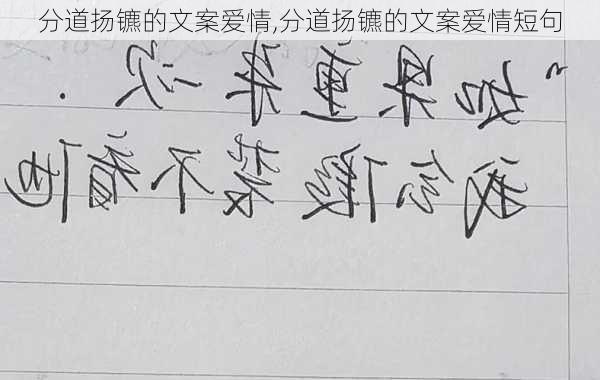 分道扬镳的文案爱情,分道扬镳的文案爱情短句
"如果重来次.
我会假装不看